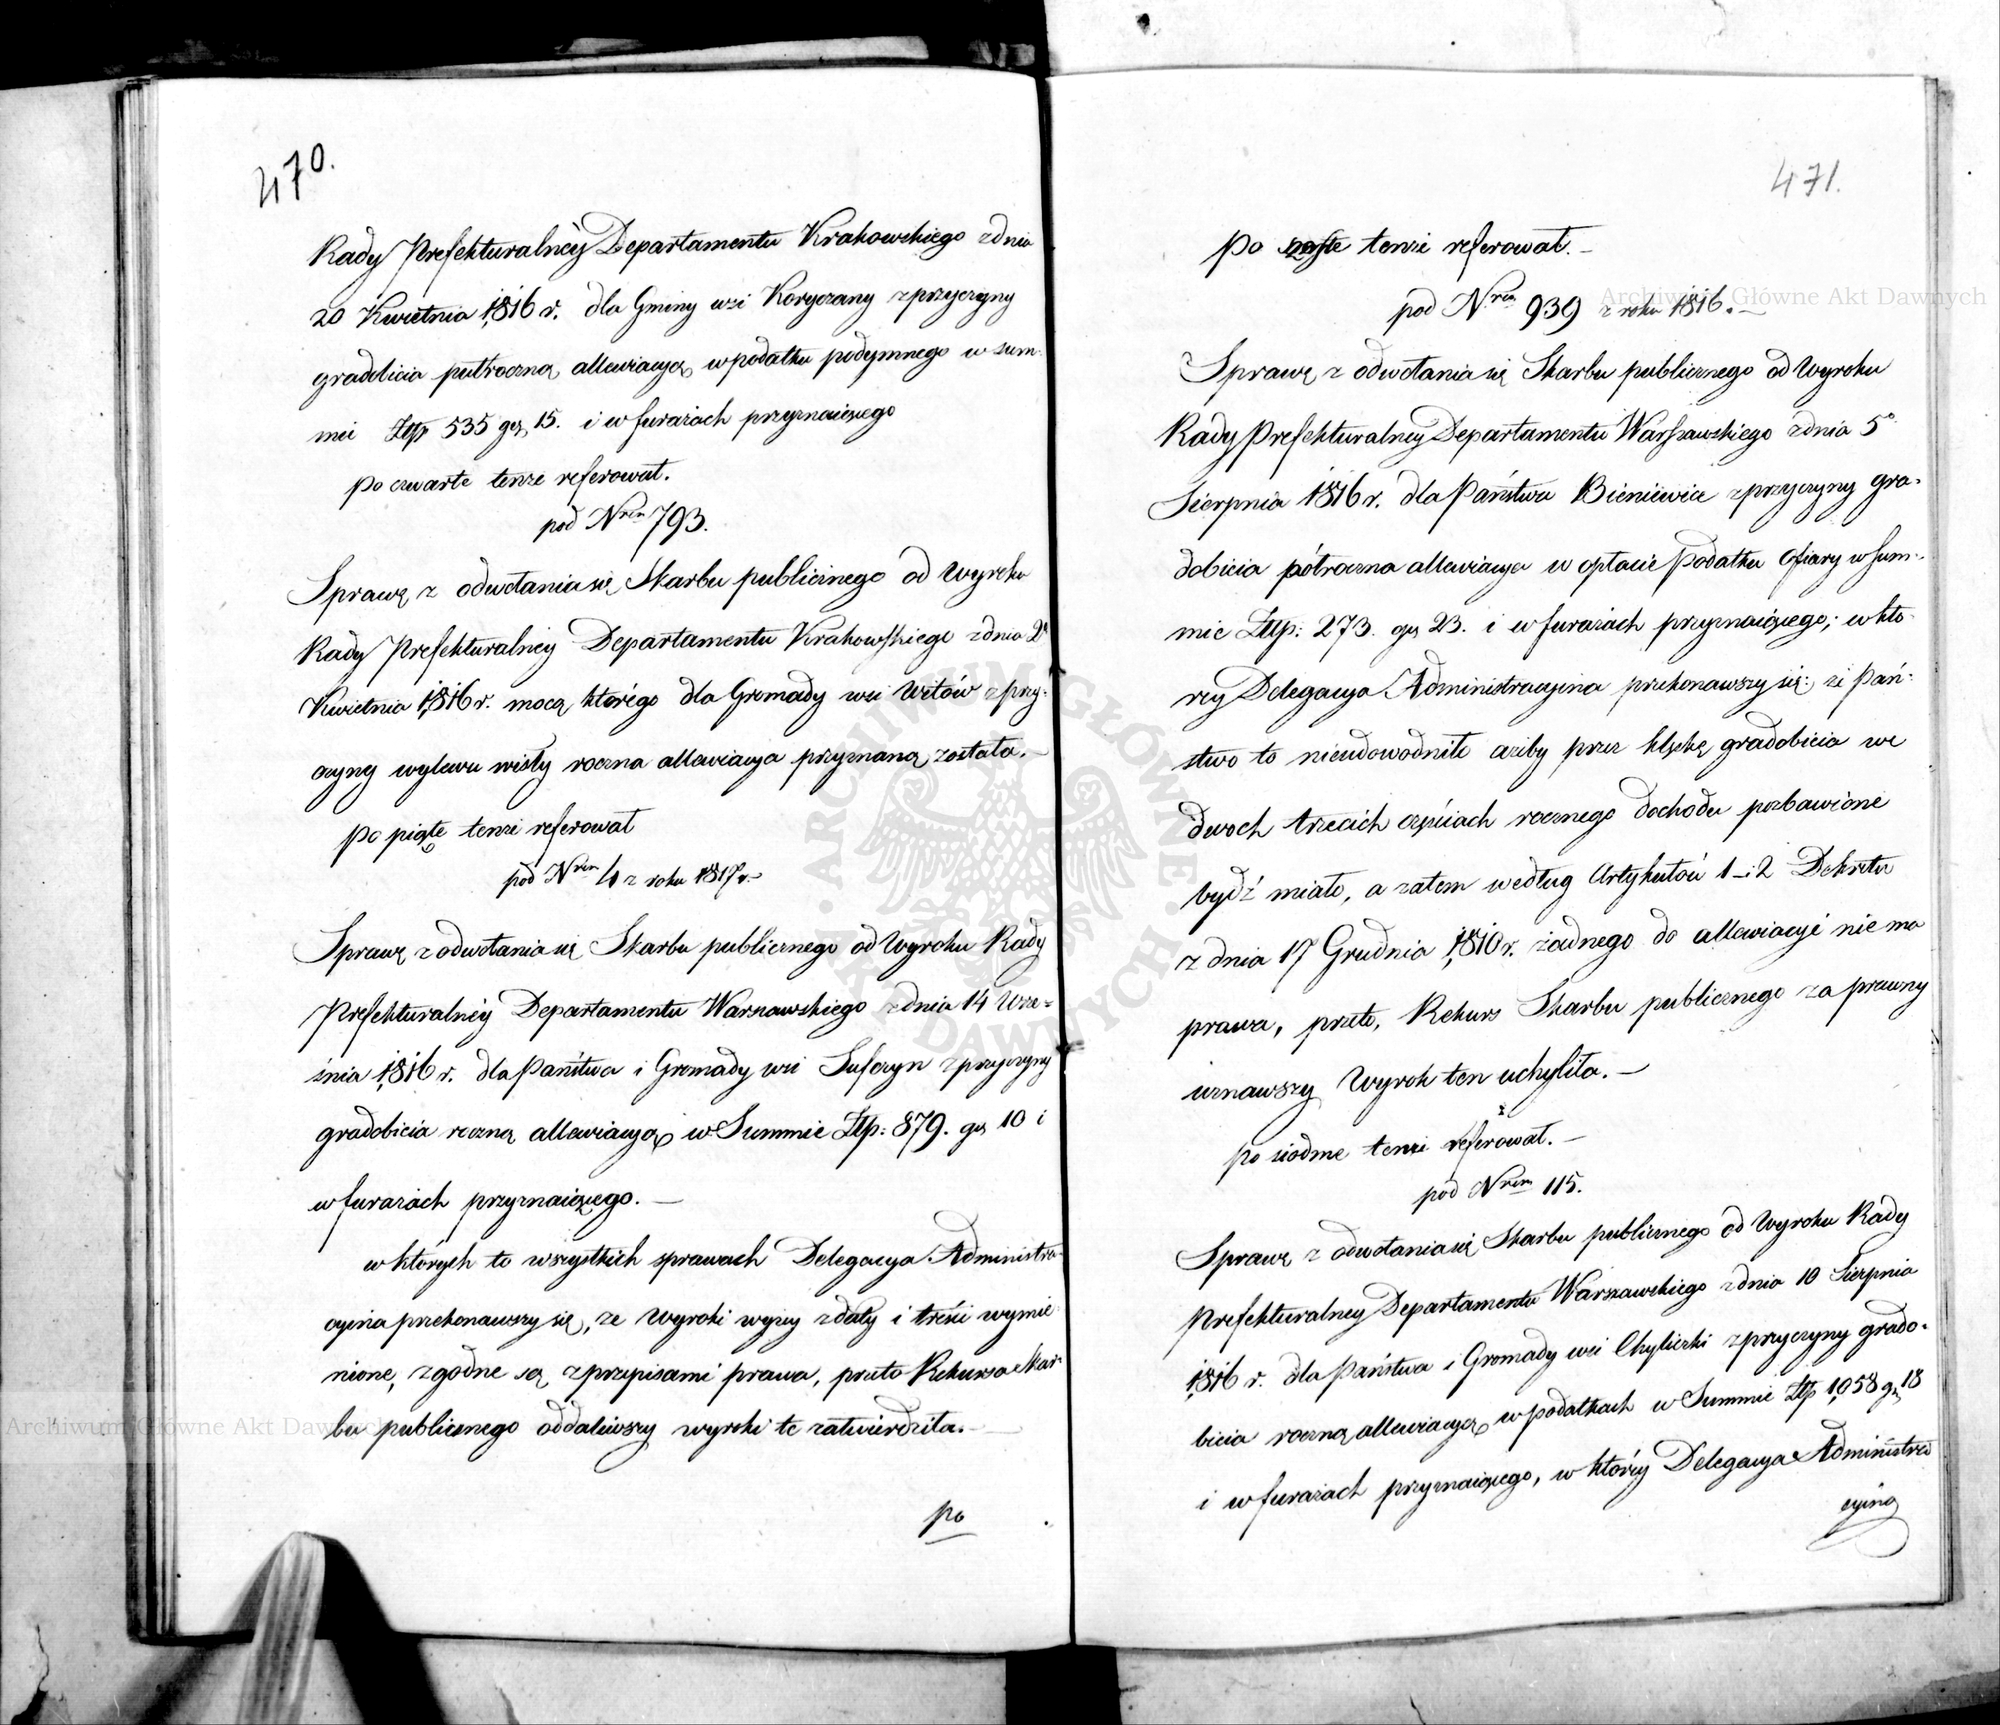 470.
Rady Prefekturalnéy Departamentu Krakowskiego zdnia
20 Kwietnia 1816 r. dla Gminy wsi Koryczany zprzyczyny
gradobicia pułroczną allewiacyą wpodatku podymnego w sum-
mie Złp 535 gr. 15. i w furażach przyznaiącego
po czwarte tenże referował.
pod Nrem 793.
Sprawę z odwołania się Skarbu publicznego od Wyroku
Rady Prefekturalnéy Departamentu Krakowskiego zdnia 2o
Kwietnia 1816 r. mocą którégo dla Gromady wsi Witów zprzy-
czyny wylewu wisły roczna allewiacya przyznaną została.—
po piąte tenże referował
pod Nrem 4 z roku 1817 r.—
Sprawę z odwołania się Skarbu publicznego od Wyroku Rady
Prefekturalnéy Departamentu Warszawskiego zdnia 14 Wrze-
śnia 1816 r. dla Państwa i Gromady wsi Sufczyn zprzyczyny
gradobicia roczną allewiacyą w Summie Złp: 879. gr 10 i
w furażach przyznaiącego.—
w których to wszystkich sprawach Delegacya Administra-
cyina przekonawszy się, że Wyroki wyżey zdaty i treści wymie-
nione, zgodne są zprzepisami prawa, przeto Rekursa Skar-
bu publicznego oddaliwszy wyroki te zatwierdziła.—
po
471.
po szoste tenże referował.—
pod Nrem 939 z roku 1816.—
Sprawę z odwołania się Skarbu publicznego od Wyroku
Rady Prefekturalney Departamentu Warszawskiego zdnia 5o
Sierpnia 1816 r. dla Państwa Bieniewice zprzyczyny gra-
dobicia półroczna allewiacya w opłacie Podatku Ofiary w Sum-
mie Złp: 273. gr 23. i w furażach przyznaiącego; w któ-
rey Delegacya Administracyina przekonawszy się: że Pań-
stwo to nieudowodniło ażeby przez klęskę gradobicia we
dwoch trzecich częściach rocznego dochodu pozbawione
bydź miało, a zatem według Artykułów 1 i 2 Dekretu
z dnia 17 Grudnia 1810 r. żadnego do allewiacyi nie ma
prawa, przeto, Rekurs Skarbu publicznego za prawny
uznawszy Wyrok ten uchyliła.—
po siodme tenże referował.—
pod Nrem 115.
Sprawę z odwołania się Skarbu publicznego od Wyroku Rady
Prefekturalney Departamentu Warszawskiego zdnia 10 Sierpnia
1816 r. dla Państwa i Gromady wsi Chyliczki zprzyczyny grado-
bicia roczną allewiacyą wpodatkach w Summie Złp 1,058 gr. 18
i w furażach przyznaiącego, w któréy Delegacya Administra
cyina
Archiwum Główne Akt Dawnych